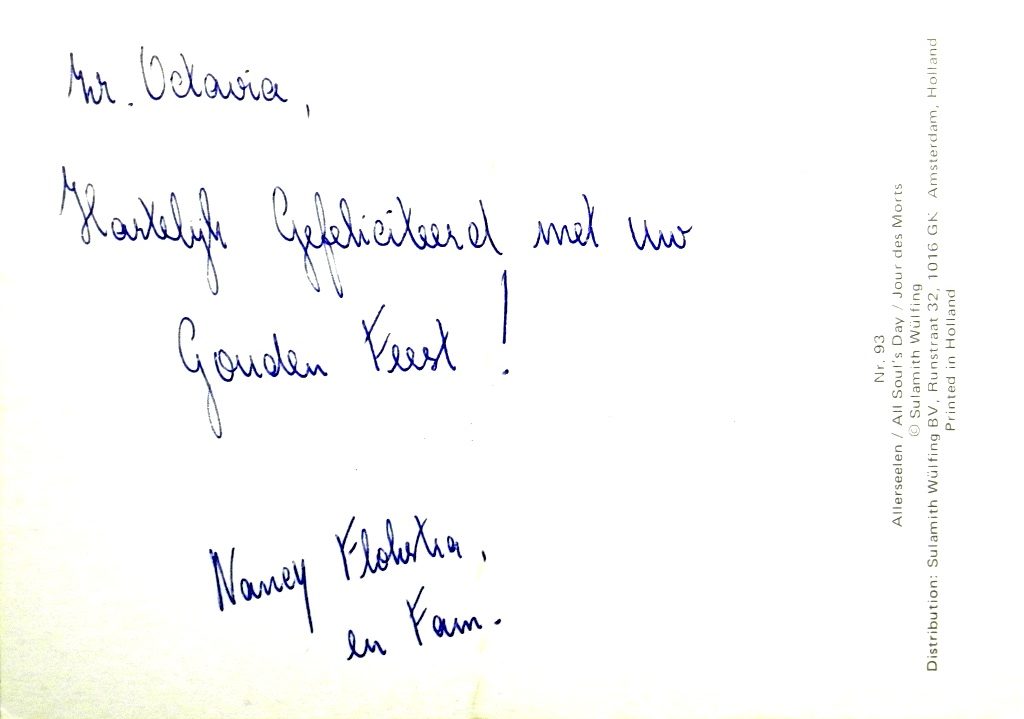 Zr. Octavia,
Hartelijk Gefeliciteerd met uw
Gouden Feest!
Nancy Flokstra,
en Fam.
Nr. 93
Allerseelen / All Soul's Day / Jour des Morts
© Sulamith Wülfing
Distribution: Sulamith Wülfing BV, Runstraat 32, 1016 GK Amsterdam, Holland
Printed in Holland